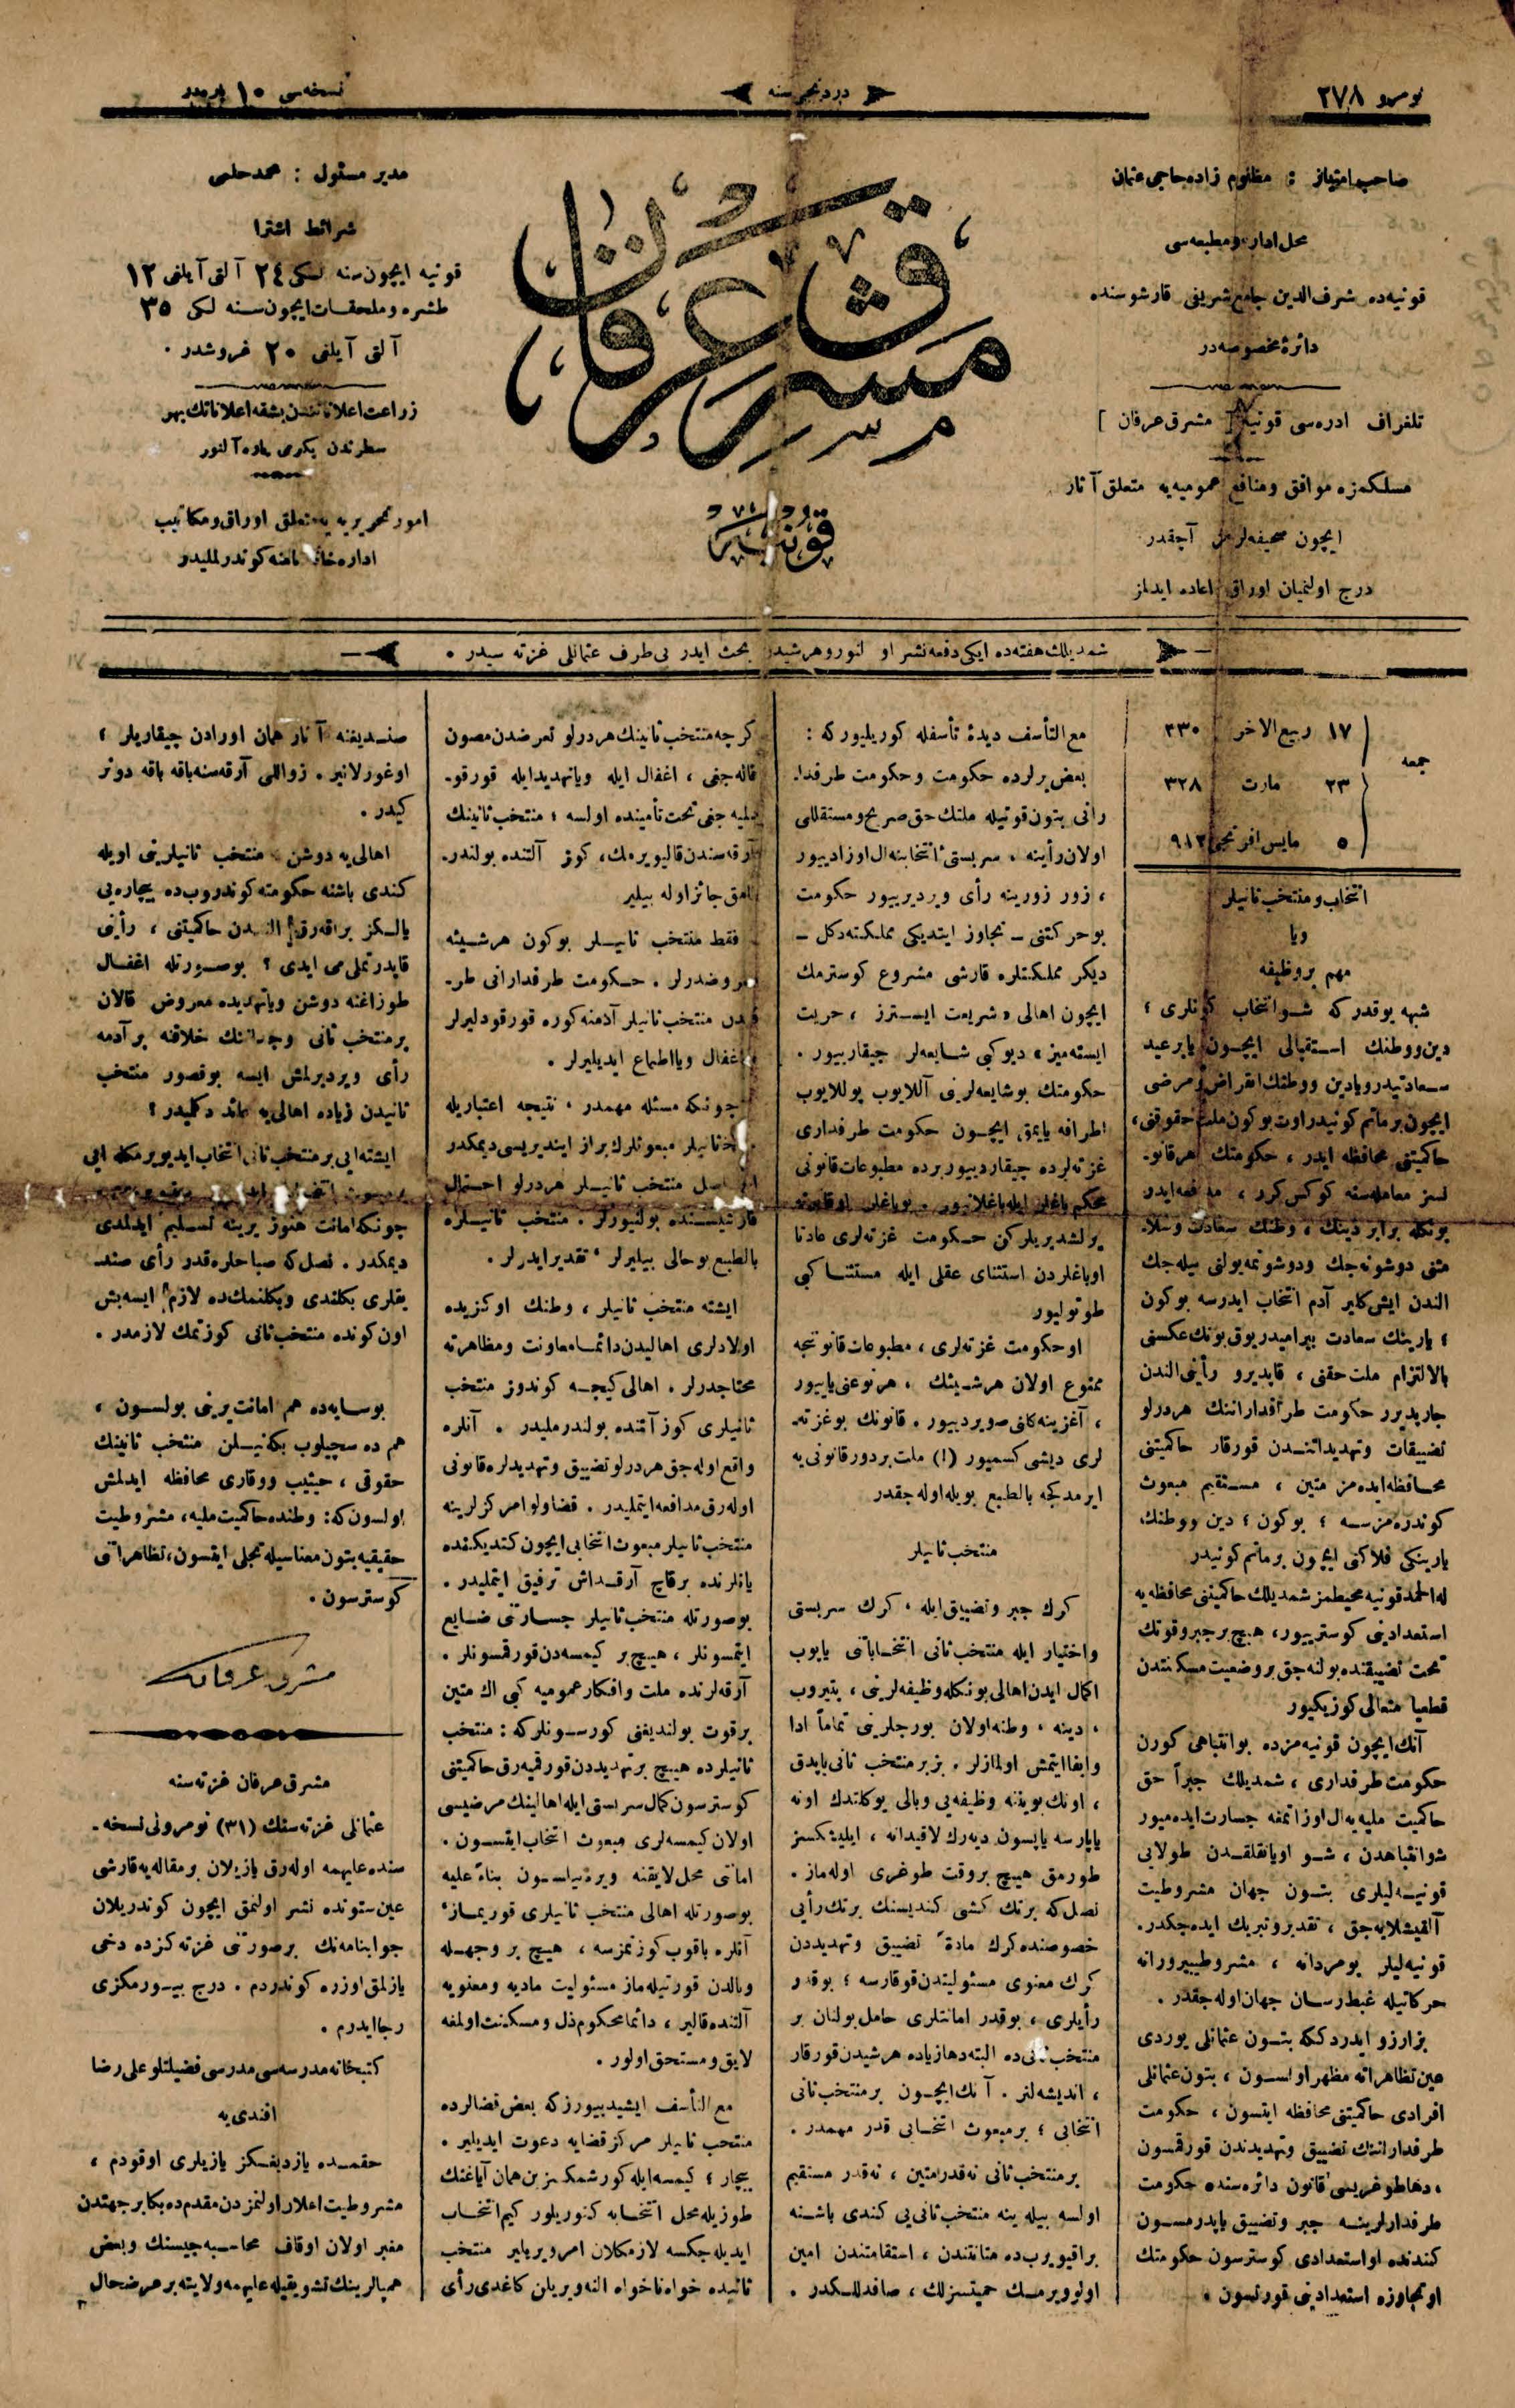 نومرو ٢٧٨
دردنجی سنه
نسخه‌سی ١٠ پاره‌در
صاحب امتیاز : مظلوم زاده حاجی عثمان
محل اداره و مطبعه‌سی
قونیه‌ده شرف‌الدین جامع شریفی قارشوسنده
دائرهٔ مخصوصه‌در
تلغراف ادره‌سی قونیه [ مشرق عرفان ]
مسلكمزه موافق و منافع عمومیه‌یه متعلق آثار
ایچون صحیفه‌لرمز آچقدر
درج اولنمیان اوراق اعاده ایدلمز
مشرق عرفان
قونیه
مدیر مسئول : محمد حلمی
شرائط اشترا
قونیه ایچون سنه لكی ٢٤ آلتی آیلغی ١٢
طشره و ملحقات ایچون سنه لكی ٣٥
آلتی آیلغی ٢٠ غروشدر .
زراعت اعلاناتندن بشقه اعلاناتك بهر
سطرندن یكرمی پاره آلنور
امور تحریریه یه متعلق اوراق و مكاتیب
اداره‌خانه نامنه كوندرلملیدر
شمدیلك هفته‌ده ایكی دفعه نشر اولنور و هر شیدن بحث ایدر بی طرف عثمانلی غزته سیدر .
جمعه
١٧ ربیع الاخر ٣٣٠
٢٣ مارت ٣٢٨
٥ مایس افرنجی ٩١٢
انتخاب و منتخب ثانیلر
ویا
مهم بر وظیفه
شبهه یوقدر كه شو انتخاب كونلری ؛
دین و وطنك استقبالی ایچون یا بر عید
سعادتیدر ویا دین و وطنك انقراض و مرضی
ایچون بر ماتم كونیدر اوت بوكون ملت حقوقنی ،
حاكمیتنی محافظه ایدر ، حكومتك هر قانو-
نسز معامله‌سنه كوكس كرر ، مدافعه ایدر
بونكله برابر دینك ، وطنك سعادت و سلا-
متنی دوشونه‌جك و دوشونمه یولنی بیله جك
الندن ایش كلیر آدم انتخاب ایدرسه بوكون
؛ یارینك سعادت بیرامیدر یوق بونك عكسنی
بالالتزام ملت حقنی ، قاپدیرو رأینی الندن
جارپدیرر حكومت طرفدارانتك هر درلو
تضییقات و تهدیداتندن قورقار حاكمیتنی
محافظه ایده مز متین ، مستقیم مبعوث
كوندره مزسه ؛ بوكون ؛ دین و وطنك
یارینكی فلاكتی ایچون بر ماتم كونیدر
له الحمد قونیه محیطمز شمدیلك حاكمیتنی محافظه یه
استعدادینی كوسترییور ، هیچ بر جبر و قوتك
تحت تضییقنده بولنه جق بر وضعیت مسكنتدن
قطعیا متعالی كوزیكیور
آنك ایچون قونیه مزده بو انتباهی كورن
حكومت طرفداری ، شمدیلك جبراً حق
حاكمیت ملیه یه ال اوزاتمغه جسارت ایده میور
شو انتباهدن ، شو اویانقلقدن طولایی
قونیه لیلری بتون جهان مشروطیت
آلقیشلایه جق ، تقدیر و تبریك ایده جكدر .
قونیه لیلر بو مردانه ، مشروطیپرورانه
حركاتیله غبطه رسان جهان اوله جقدر .
بز آرزو ایدرز كه بتون عثمانلی یوردی
عین تظاهراته مظهر اولسون ، بتون عثمانلی
افرادی حاكمیتنی محافظه ایتسون ، حكومت
طرفدارانتك تضییق و تهدیدندن قورقمسون
، دها طوغریسی قانون دائره سنده حكومت
طرفدارلرینه جبر و تضییق یاپدرمسون
كندنده او استعدادی كوسترسون حكومتك
او تجاوزه استعدادینی قورتسون .
مع التأسف دیدهٔ تأسفله كوریلیور كه :
بعض یرلرده حكومت و حكومت طرفدا-
رانی بتون قوتیله ملتك حق صریح و مستقللی
اولان رأینه ، سربستیٔ انتخابنه ال اوزادییور
، زور زورینه رأی ویردیرییور حكومت
بو حركتنی – تجاوز ایتدیكی مملكته دكل –
دیكر مملكتلره قارشی مشروع كوسترمك
ایچون اهالی « شریعت ایسترز ، حریت
ایسته میز » دیو كبی شایعه لر چیقارییور .
حكومتك بو شایعه لرینی آللایوب پوللایوب
اطرافه یایمق ایچون حكومت طرفداری
غزته لرده چیقاردییور برده مطبوعات قانونی
محكم باغلر ایله باغلانیور . بو باغلر او قانونه
یرلشدیریلركن حكومت غزته لری عادتا
او باغلردن استثنای عقلی ایله مستثنا كبی
طوتولیور
او حكومت غزته لری ، مطبوعات قانونجه
ممنوع اولان هر شیئك ، هر نوعنی یاپییور
، آغزینه كلنی صویردییور . قانونك بو غزته
لری دیشی كسمیور (!) ملت بردور قانونی یه
ایرمدكجه بالطبع بویله اوله جقدر
منتخب ثانیلر
كرك جبر و تضییق ایله ، كرك سربستی
و اختیار ایله منتخب ثانی انتخاباتنی یاپوب
اكمال ایدن اهالی بونكله وظیفه لرینی ، بتیروب
، دینه ، وطنه اولان بورجلرینی تماماً ادا
و ایفا ایتمش اولمازلر . بز بر منتخب ثانی یاپدق
، اونك بوینه وظیفه یی و بالی یوكلتدك اونه
یاپارسه یاپسون دیه رك لاقیدانه ، ایلیشكسز
طورمق هیچ بر وقت طوغری اوله ماز .
نصل كه برتك كشی كندیسنك برتك رأیی
خصوصنده كرك مادةً تضییق و تهدیددن
كرك معنوی مسئولیتدن قورقارسه ؛ بو قدر
رأیلری ، بوقدر امانتلری حامل بولنان بر
منتخب ثانی ده البته دها زیاده هر شیدن قورقار
، اندیشه لنر . آنك ایچون بر منتخب ثانی
انتخابی ؛ بر مبعوث انتخابی قدر مهمدر .
بر منتخب ثانی نه قدر متین ، نه قدر مستقیم
اولسه بیله ینه منتخب ثانی یی كندی باشنه
براقیویرب ده متانتندن ، استقامتندن امین
اولوویرمك حمیتسزلك ، صافدللكدر .
كرچه منتخب ثانینك هر درلو تعرضدن مصون
قاله جغی ، اغفال ایله ویا تهدید ایله قورقو-
دلمیه جغی تحت تأمینده اولسه ؛ منتخب ثانینك
آرقه سندن قالیویرمك ، كوز آلتنده بولندر-
مامق جائز اوله بیلیر
فقط منتخب ثانیلر بوكون هر شیئه
معروضدرلر . حكومت طرفدارانی طر-
فندن منتخب ثانیلر آدمنه كوره قورقودلیرلر
، اغفال ویا اطماع ایدیلیرلر .
چونكه مسئله مهمدر ، نتیجه اعتباریله
ایندیریسی دیمكدر
منتخب ثانیلر هر درلو احتمال
قارشیسنده بولنیورلر . منتخب ثانیلره
بالطبع بو حالی بیلیرلر ، تقدیر ایدرلر .
ایشته منتخب ثانیلر ، وطنك او كزیده
اولادلری اهالیدن دائما معاونت و مظاهرته
محتاجدرلر . اهالی كیجه كوندوز منتخب
ثانیلری كوز آلتنده بولندرملیدر . آنلره
واقع اوله جق هر درلو تضییق و تهدیدلره قانونی
اوله رق مدافعه ایتملیدر . قضا ولوا مركزلرینه
منتخب ثانیلر مبعوث انتخابی ایچون كتدیكنده
یانلرنده برقاچ آرقداش ترفیق ایتملیدر .
بو صورتله منتخب ثانیلر جسارتنی ضایع
ایتمسونلر ، هیچ بر كیمسه دن قورقمسونلر .
آرقه لرنده ملت و افكار عمومیه كبی اك متین
بر قوت بولندیغنی كورسونلر كه : منتخب
ثانیلرده هیچ بر تهدیددن قورقمیه رق حاكمیتنی
كوسترسون كمال سربستی ایله اهالینك مرضیسی
اولان كیمسه لری مبعوث انتخاب ایتسون .
امانتی محل لایقنه ویرمش اولسون بناءً علیه
بو صورتله اهالی منتخب ثانیلری قوریماز ،
آنلره باقوب كوزتمزسه ، هیچ بر وجهله
وبالدن قورتیله ماز مسئولیت مادیه و معنویه
آلتنده قالیر ، دائما محكوم ذل و مسكینت اولمغه
لایق و مستحق اولور .
مع التأسف ایشیدییورز كه بعض قضالرده
منتخب ثانیلر مركز قضایه دعوت ایدیلیر .
بیچار ؛ كیمسه ایله كورشمكسزین همان آیاغنك
طوزیله محل انتخابه كتوریلور كیم انتخاب
ایدیله جكسه لازمكلان امر ویریلیر منتخب
ثانیده خواه ناخواه النه ویریلن كاغدی رأی
صندیغنه آتار همان اورادن چیقاریلر ؛
اوغورلانیر . زواللی آرقه سنه باقه باقه دونر
كیدر .
اهالی یه دوشن منتخب ثانیلرینی اویله
كندی باشنه حكومته كوندروب ده بیچاره یی
یالكز براقه رق الندن حاكمیتنی ، رأینی
قاپدرتملی می ایدی ؟ بو صورتله اغفال
طوزاغنه دوشن ویا تهدیده معروض قالان
بر منتخب ثانی وجداننك خلافنه بر آدمه
رأی ویردیرلمش ایسه بو قصور منتخب
ثانیدن زیاده اهالی یه عائد دكلیدر ؟
ایشته ایی بر منتخب ثانی انتخاب ایدیویرمكله ایی
چونكه امانت هنوز یرینه تسلیم ایدلمدی
دیمكدر . نصل كه صباحلره قدر رأی صند-
یقلری بكلندی و بكلنمك ده لازم ایسه بش
اون كونده منتخب ثانی كوزتمك لازمدر .
بو سایه ده هم امانت یرینی بولسون ،
هم ده سچیلوب بكنیلن منتخب ثانینك
حقوقی ، حیثیت و وقاری محافظه ایدلمش
اولسون كه : وطنده حاكمیت ملیه ، مشروطیت
حقیقیه بتون معناسیله تجلی ایتسون ، تظاهراتنی
كوسترسون .
مشرق عرفان
مشرق عرفان غزته سنه
عثمانلی غزته سنك (٣١) نومرولی نسخه-
سنده علیهمه اوله رق یازیلان بر مقاله یه قارشی
عین ستونده نشر اولنمق ایچون كوندریلان
جوابنامه نك بر صورتنی غزته كزده دخی
یازلمق اوزره كوندردم . درج بیورمكزی
رجا ایدرم .
كتبخانه مدرسه سی مدرسی فضیلتلو علی رضا
افندی یه
حقمده یازدیغكز یازیلری اوقودم ،
مشروطیت اعلان اولنمزدن مقدم ده بكا بر جهتدن
مغبر اولان اوقاف محاسبه جیسنك و بعض
همپالرینك تشویقیله علیهمه ولایته بر عرضحال